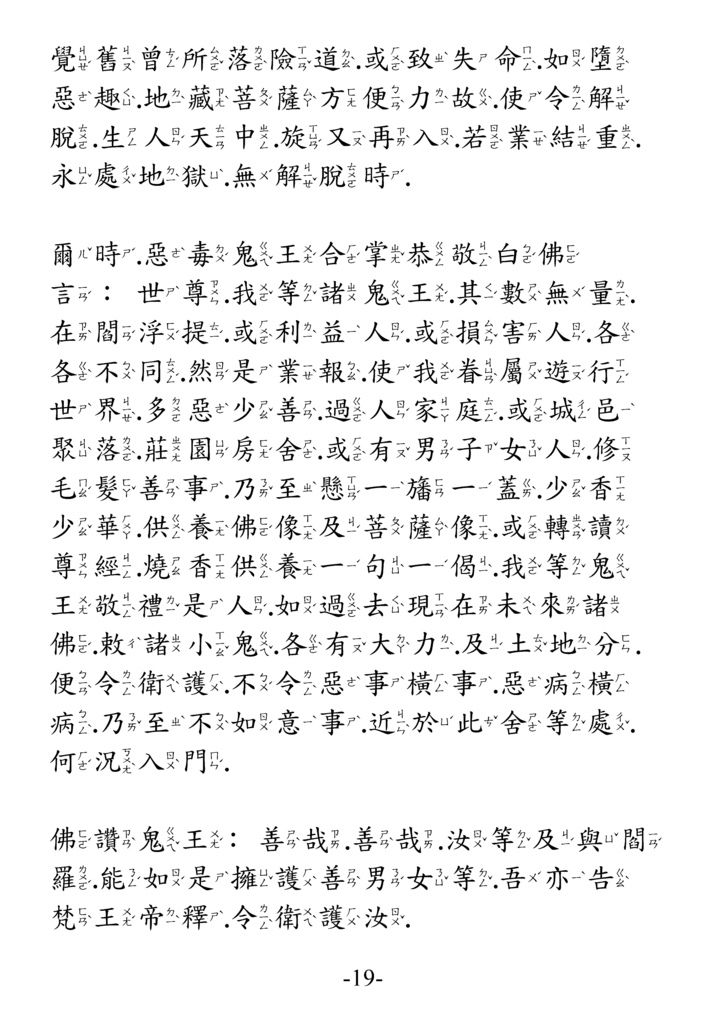 覺舊曾所落險道.或致失命.如墮
惡趣.地藏菩薩方便力故.使令解
脫.生人天中.旋又再入.若業結重.
永處地獄.無解脫時.
爾時.惡毒鬼王合掌恭敬白佛
言：世尊.我等諸鬼王.其數無量.
在閻浮提.或利益人.或損害人.各
各不同.然是業報.使我眷屬遊行
世界.多惡少善.過人家庭.或城邑
聚落.莊園房舍.或有男子女人.修
毛髮善事.乃至懸一旛一蓋.少香
少華.供養佛像及菩薩像.或轉讀
尊經.燒香供養一句一偈.我等鬼
王敬禮是人.如過去現在未來諸
佛.敕諸小鬼.各有大力.及土地分.
便令衛護.不令惡事橫事.惡病橫
病.乃至不如意事.近於此舍等處.
何況入門.
佛讚鬼王：善哉.善哉.汝等及與閻
羅.能如是擁護善男女等.吾亦告
梵王帝釋.令衛護汝.
-19-